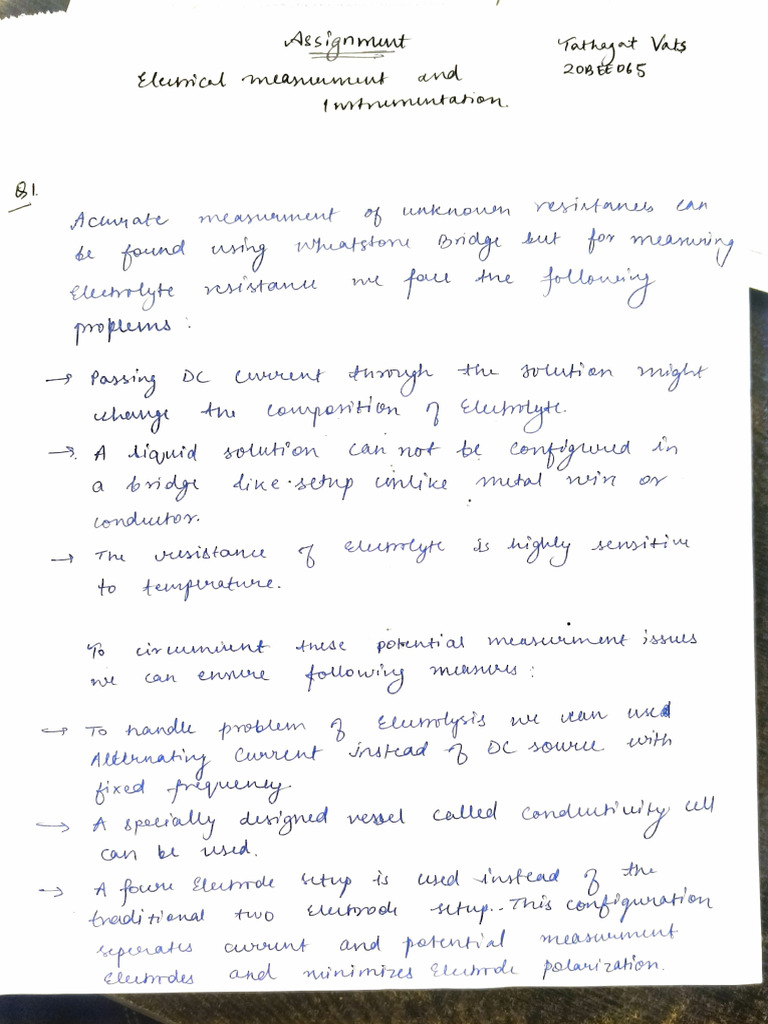 Assignment
Tathagat Vats
20BEE065
Electrical measurment and
Instrumentation.
Q1.
Accurate measurment of unknown resistances can
be found using Wheatstone Bridge but for measuring
Electrolyte resistance we face the following
problems:
→ Passing DC current through the solution might
change the composition of Electrolyte.
→ A liquid solution can not be configured in
a bridge like setup unlike metal wire or
conductor.
→ The resistance of Electrolyte is highly sensitive
to temperature.
To circumvent these potential measurment issues
we can ensure following measures:
→ To handle problem of Electrolysis we can used
Alternating Current instead of DC source with
fixed frequency.
→ A specially designed vessel called conductivity cell
can be used.
→ A four Electrode setup is used instead of the
traditional two Electrode setup. This configuration
seperates current and potential measurment
Electrodes and minimizes Electrode polarization.